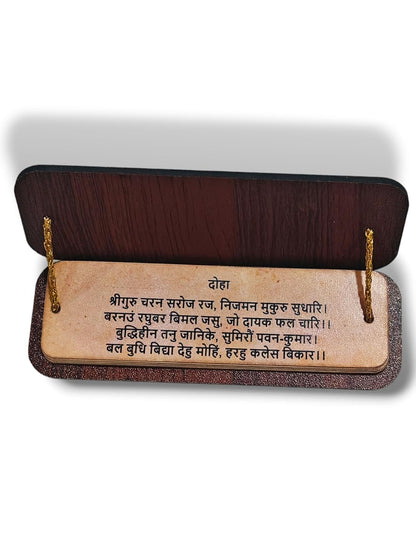 दोहा
श्रीगुरु चरन सरोज रज, निजमन मुकुरु सुधारि।
बरनउं रघुबर बिमल जसु, जो दायक फल चारि।।
बुद्धिहीन तनु जानिके, सुमिरौ पवन-कुमार।
बल बुधि बिद्या देहु मोहिं, हरहु कलेस बिकार।।